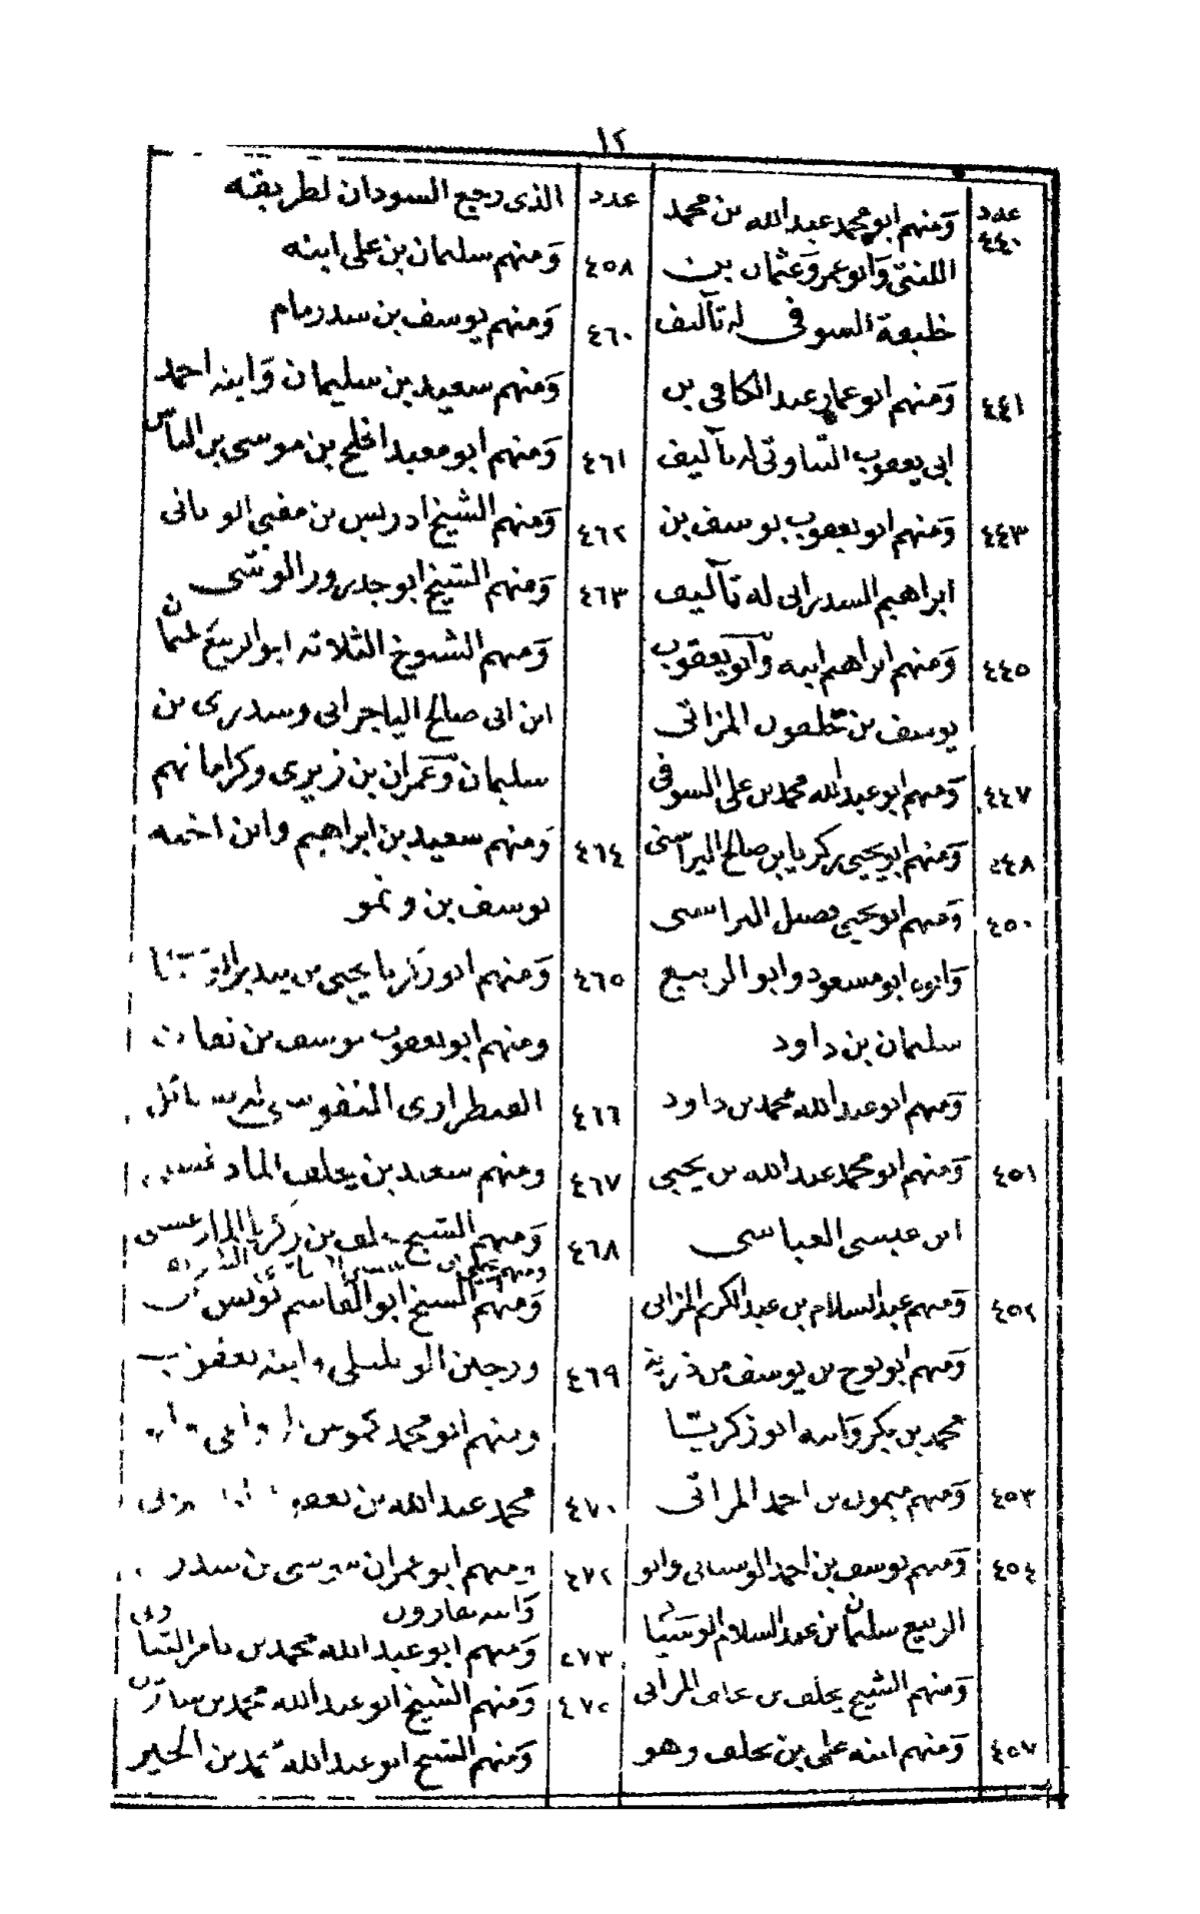 ١٢
عدد
٤٤٠ ومنهم ابو محمد عبد الله بن محمد
اللنتى وابو عمرو عثمان بن
خليفة السوفى له تآليف
٤٤١ ومنهم ابو عمار عبد الكافى بن
ابى يعقوب التناوتى له تآليف
٤٤٣ ومنهم ابو يعقوب يوسف بن
ابراهيم السدراتى له تآليف
٤٤٥ ومنهم ابراهيم ابنه وابو يعقوب
يوسف بن خلفون المزاتى
٤٤٧ ومنهم ابو عبد الله محمد بن على السوفى
٤٤٨ ومنهم ابو يحيى زكريا بن صالح اليراسنى
٤٥٠ ومنهم ابو يحيى فصيل اليراسنى
وابوه ابو مسعود وابو الربيع
سليمان بن داود
ومنهم ابو عبد الله محمد بن داود
٤٥١ ومنهم ابو محمد عبد الله بن يحيى
ابن عيسى العباسى
٤٥٢ ومنهم عبد السلام بن عبد الكريم المزاتى
ومنهم ابو نوح بن يوسف من ذرية
محمد بن بكر وابنه ابو زكرياء
٤٥٣ ومنهم ميمون بن احمد المزاتى
٤٥٤ ومنهم يوسف بن احمد الوسيانى وابو
الربيع سليمان بن عبد السلام الوسيانى
ومنهم الشيخ يخلف بن يخلف المزاتى
٤٥٧ ومنهم ابنه على بن يخلف وهو
عدد الذى رجع السودان لطريقته
٤٥٨ ومنهم سليمان بن على ابنه
٤٦٠ ومنهم يوسف بن سدرمام
ومنهم سعيد بن سليمان وابنه احمد
٤٦١ ومنهم ابو معبد افلح بن موسى بن الياس
٤٦٢ ومنهم الشيخ ادريس بن مفتى
٤٦٣ ومنهم الشيخ ابو جديرور الونشى
ومنهم الشيوخ الثلاثة ابو الربيع سليمان
ابن ابى صالح الياجرانى وسدرى بن
سليمان وعمران بن زيرى وكراماتهم
٤٦٤ ومنهم سعيد بن ابراهيم وابن اخيه
يوسف بن ونمو
٤٦٥ ومنهم ابو زكريا يحيى بن
ومنهم ابو يعقوب يوسف بن نفاث
٤٦٦ القنطرارى النفوسى
٤٦٧ ومنهم سعيد بن يخلف المادغسنى
٤٦٨ ومنهم الشيخ خلف بن زكريا
ومنهم الشيخ ابو القاسم يونس بن
٤٦٩ ورجين الويليلى وابنه يعقوب
ومنهم ابو محمد كموس
٤٧٠ محمد عبد الله بن يعقوب
٤٧٢ ومنهم ابو عمران موسى بن سدر
وابنه هارون
٤٧٣ ومنهم ابو عبد الله محمد بن
٤٧٤ ومنهم الشيخ ابو عبد الله محمد بن
ومنهم الشيخ ابو عبد الله محمد بن الخير